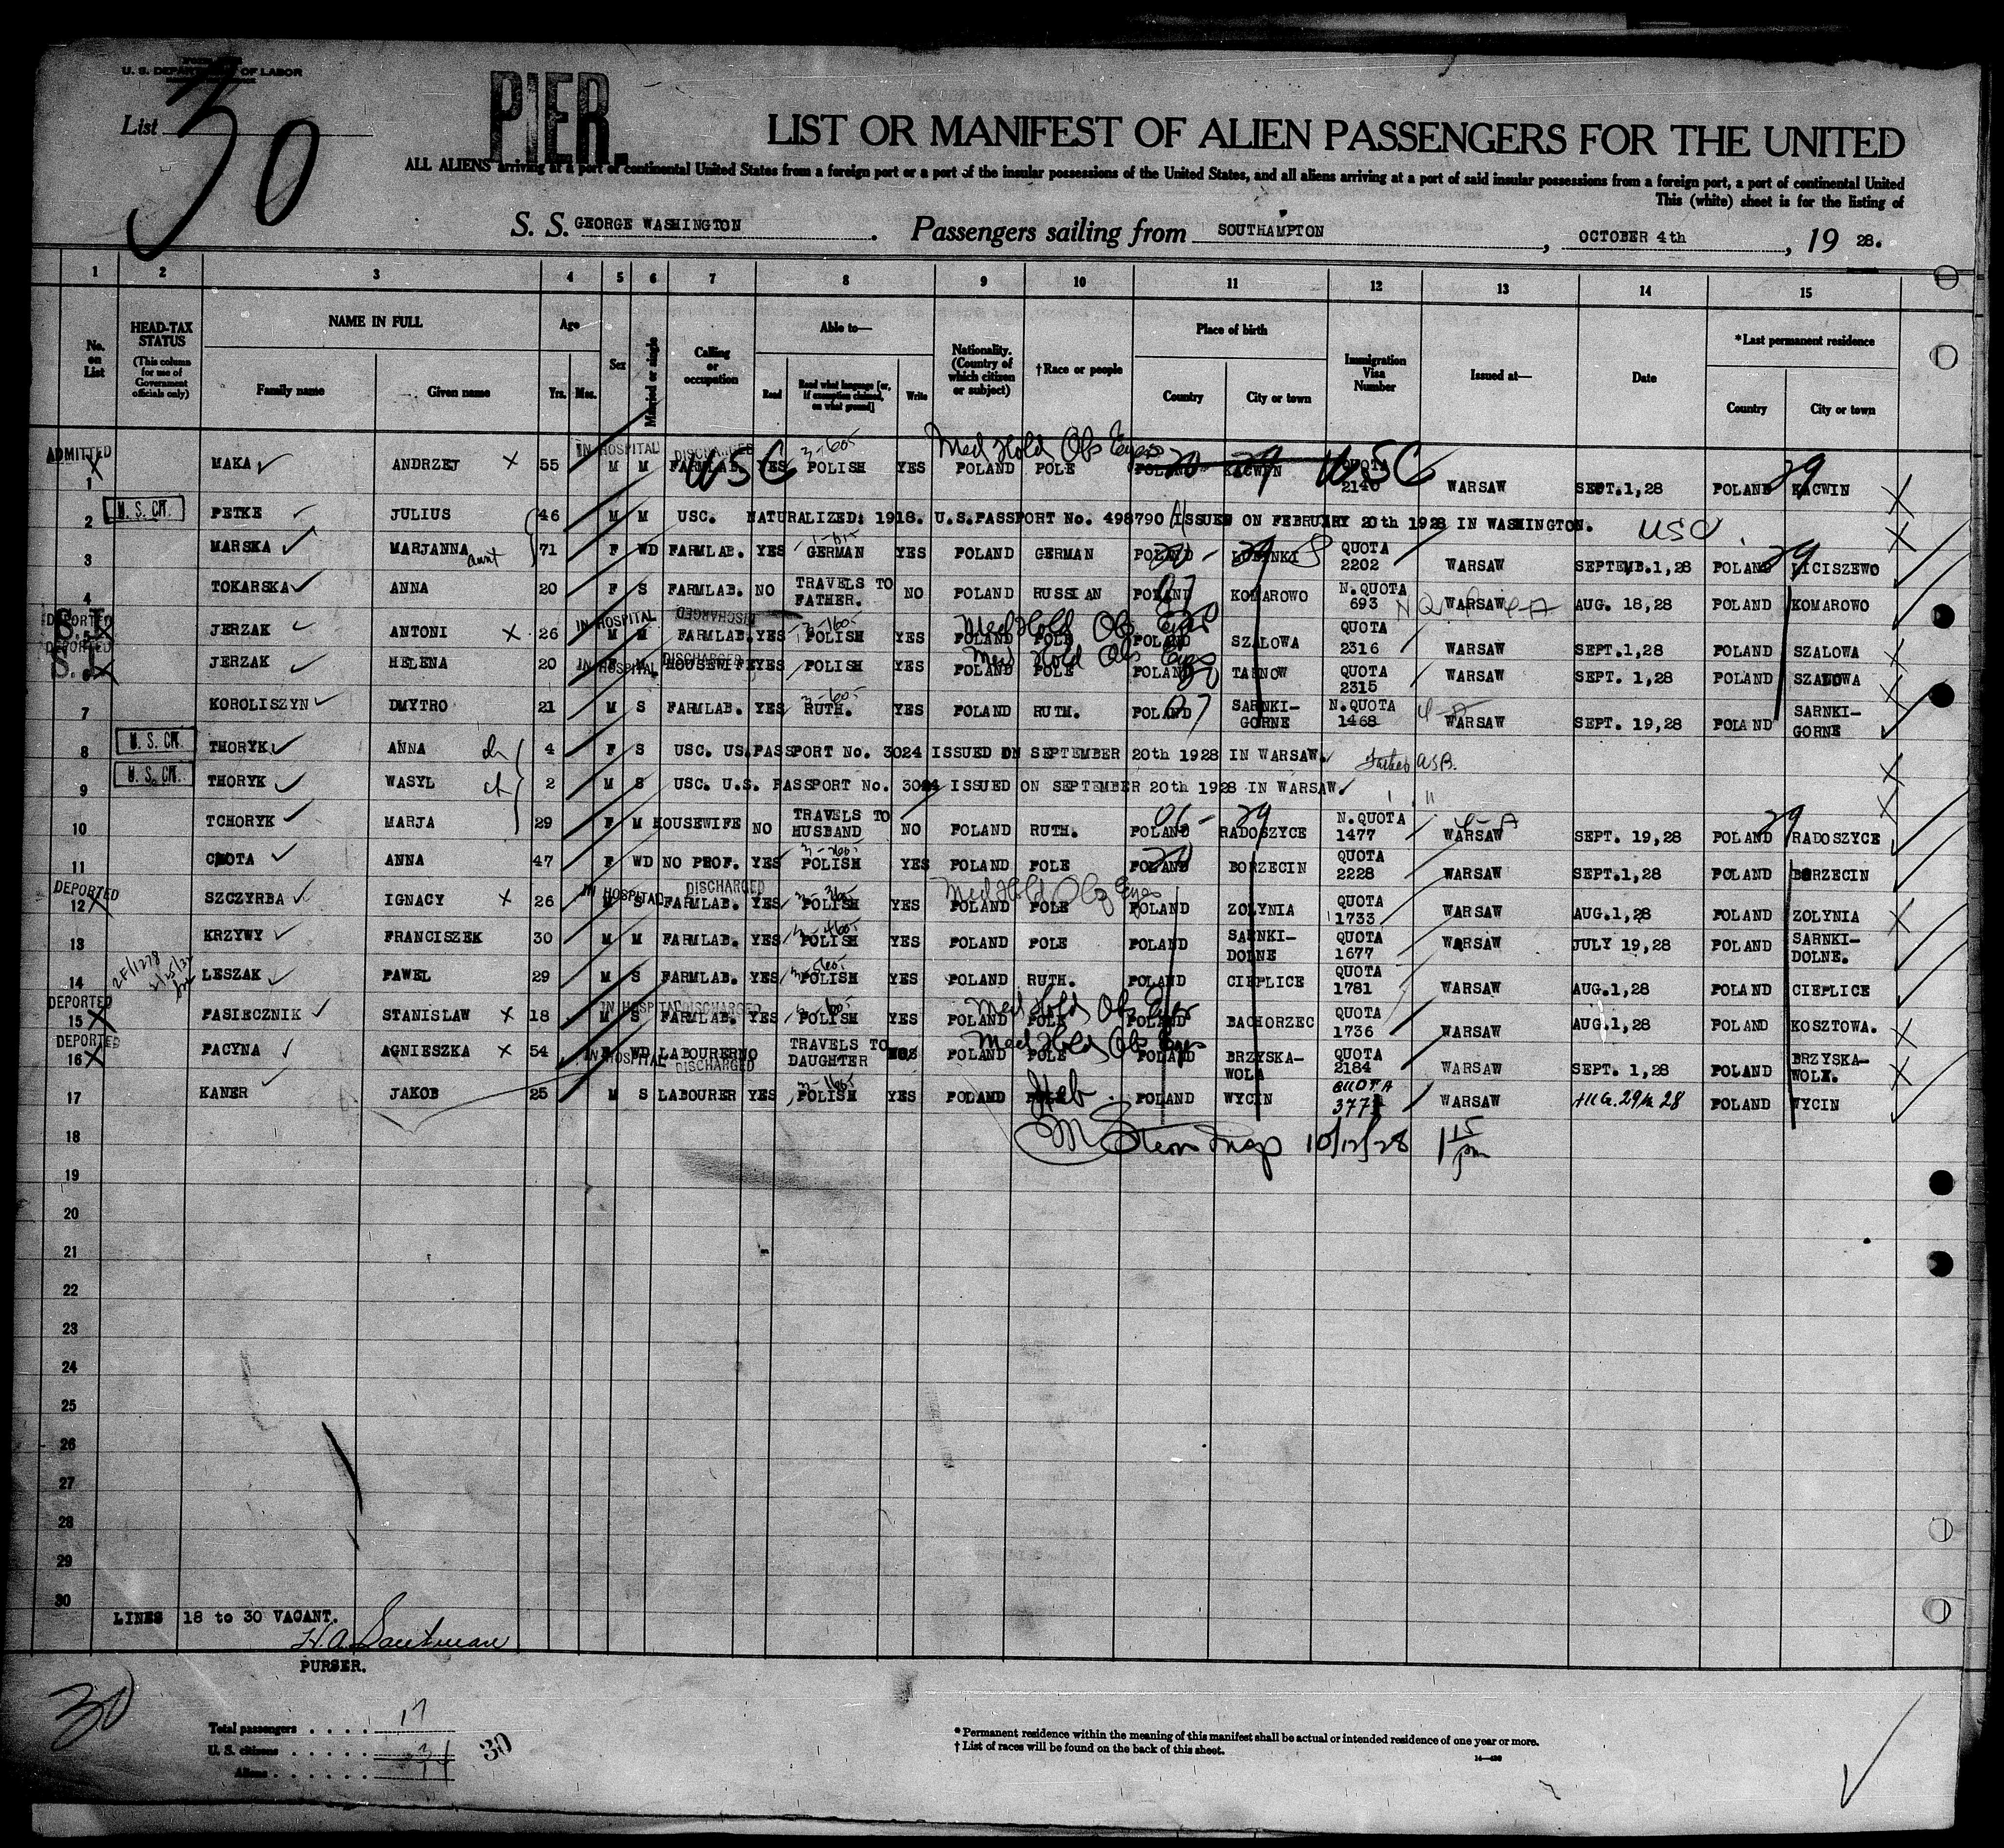 U. S. DEPARTMENT OF LABOR
List 30
PIER.
LIST OR MANIFEST OF ALIEN PASSENGERS FOR THE UNITED
ALL ALIENS arriving at a port of continental United States from a foreign port or a port of the insular possessions of the United States, and all aliens arriving at a port of said insular possessions from a foreign port, a port of continental United
This (white) sheet is for the listing of
S. S. GEORGE WASHINGTON. Passengers sailing from SOUTHAMPTON, OCTOBER 4th, 19 28.
1 2 3 4 5 6 7 8 9 10 11 12 13 14 15
No. on List
HEAD-TAX STATUS (This column for use of Government officials only)
NAME IN FULL
Family name Given name
Age
Yrs. Mos.
Sex
Married or single
Calling or occupation
Able to—
Read Read what language [or, if exemption claimed, on what ground] Write
Nationality. (Country of which citizen or subject)
†Race or people
Place of birth
Country City or town
Immigration Visa Number
Issued at—
Date
*Last permanent residence
Country City or town
ADMITTED IN HOSPITAL DISCHARGED 3-605 Med Hold Obs Eyes
1 MAKA ANDRZEJ X 55 M M FARMLAB. YES POLISH YES POLAND POLE POLAND KACWIN QUOTA 2140 WARSAW SEPT.1,28 POLAND KACWIN
WSC 29 WSC 29
2 U. S. CIT. PETKE JULIUS 46 M M USC. NATURALIZED: 1918. U.S.PASSPORT No. 498790 ISSUED ON FEBRUARY 20th 1928 IN WASHINGTON. USC
3 MARSKA MARJANNA aunt 71 F WD FARMLAB. YES GERMAN YES POLAND GERMAN POLAND QUOTA 2202 WARSAW SEPTEMB.1,28 POLAND LICISZEWO
4 TOKARSKA ANNA 20 F S FARMLAB. NO TRAVELS TO FATHER. NO POLAND RUSSIAN POLAND KOMAROWO N.QUOTA 693 WARSAW AUG. 18,28 POLAND KOMAROWO
DEPORTED S.I. IN HOSPITAL DISCHARGED Med Hold Obs Eyes
5 JERZAK ANTONI X 26 M M FARMLAB. YES POLISH YES POLAND POLE POLAND SZALOWA QUOTA 2316 WARSAW SEPT.1,28 POLAND SZALOWA
DEPORTED S.I. IN HOSPITAL DISCHARGED Med Hold Obs Eyes
6 JERZAK HELENA 20 F M HOUSEWIFE YES POLISH YES POLAND POLE POLAND QUOTA 2315 WARSAW SEPT. 1,28 POLAND SZALOWA
7 KOROLISZYN DMYTRO 21 M S FARMLAB. YES RUTH. YES POLAND RUTH. POLAND SARNKI-GORNE N.QUOTA 1468 WARSAW SEPT. 19,28 POLAND SARNKI-GORNE
8 U. S. CIT. THORYK ANNA ch 4 F S USC. US.PASSPORT No. 3024 ISSUED ON SEPTEMBER 20th 1928 IN WARSAW.
9 U. S. CIT. THORYK WASYL ch 2 M S USC. U.S. PASSPORT No. 3024 ISSUED ON SEPTEMBER 20th 1928 IN WARSAW.
10 TCHORYK MARJA 29 F M HOUSEWIFE NO TRAVELS TO HUSBAND NO POLAND RUTH. POLAND RADOSZYCE N.QUOTA 1477 WARSAW SEPT. 19,28 POLAND RADOSZYCE
11 ANNA 47 F WD NO PROF. YES POLISH YES POLAND POLE POLAND BORZECIN QUOTA 2228 WARSAW SEPT.1,28 POLAND BORZECIN
DEPORTED IN HOSPITAL DISCHARGED Med Hold Obs Eyes
12 SZCZYRBA IGNACY X 26 M S FARMLAB. YES POLISH YES POLAND POLE POLAND ZOLYNIA QUOTA 1733 WARSAW AUG.1,28 POLAND ZOLYNIA
13 KRZYWY FRANCISZEK 30 M M FARMLAB. YES POLISH YES POLAND POLE POLAND SARNKI-DOLNE QUOTA 1677 WARSAW JULY 19,28 POLAND SARNKI-DOLNE.
14 LESZAK PAWEL 29 M S FARMLAB. YES POLISH YES POLAND RUTH. POLAND CIEPLICE QUOTA 1781 WARSAW AUG.1,28 POLAND CIEPLICE
DEPORTED IN HOSPITAL DISCHARGED Med Hold Obs Eyes
15 PASIECZNIK STANISLAW X 18 M S FARMLAB. YES POLISH YES POLAND POLE POLAND BACHORZEC QUOTA 1736 WARSAW AUG.1,28 POLAND KOSZTOWA.
DEPORTED IN HOSPITAL DISCHARGED Med Hold Obs Eyes
16 PACYNA AGNIESZKA X 54 F WD LABOURER NO TRAVELS TO DAUGHTER POLAND POLE POLAND BRZYSKA-WOLA QUOTA 2184 WARSAW SEPT. 1,28 POLAND BRZYSKA-WOLA.
17 KANER JAKOB 25 M S LABOURER YES POLISH YES POLAND Heb. POLAND WYCIN QUOTA 3771 WARSAW AUG. 29th 28 POLAND WYCIN
18 M Stern Insp 10/12/28 1 15 pm
19
20
21
22
23
24
25
26
27
28
29
30
LINES 18 to 30 VACANT.
PURSER.
30
Total passengers . . . . 17
U. S. citizens . . . . . 3
Aliens . . . . . . 14
30
* Permanent residence within the meaning of this manifest shall be actual or intended residence of one year or more.
† List of races will be found on the back of this sheet.